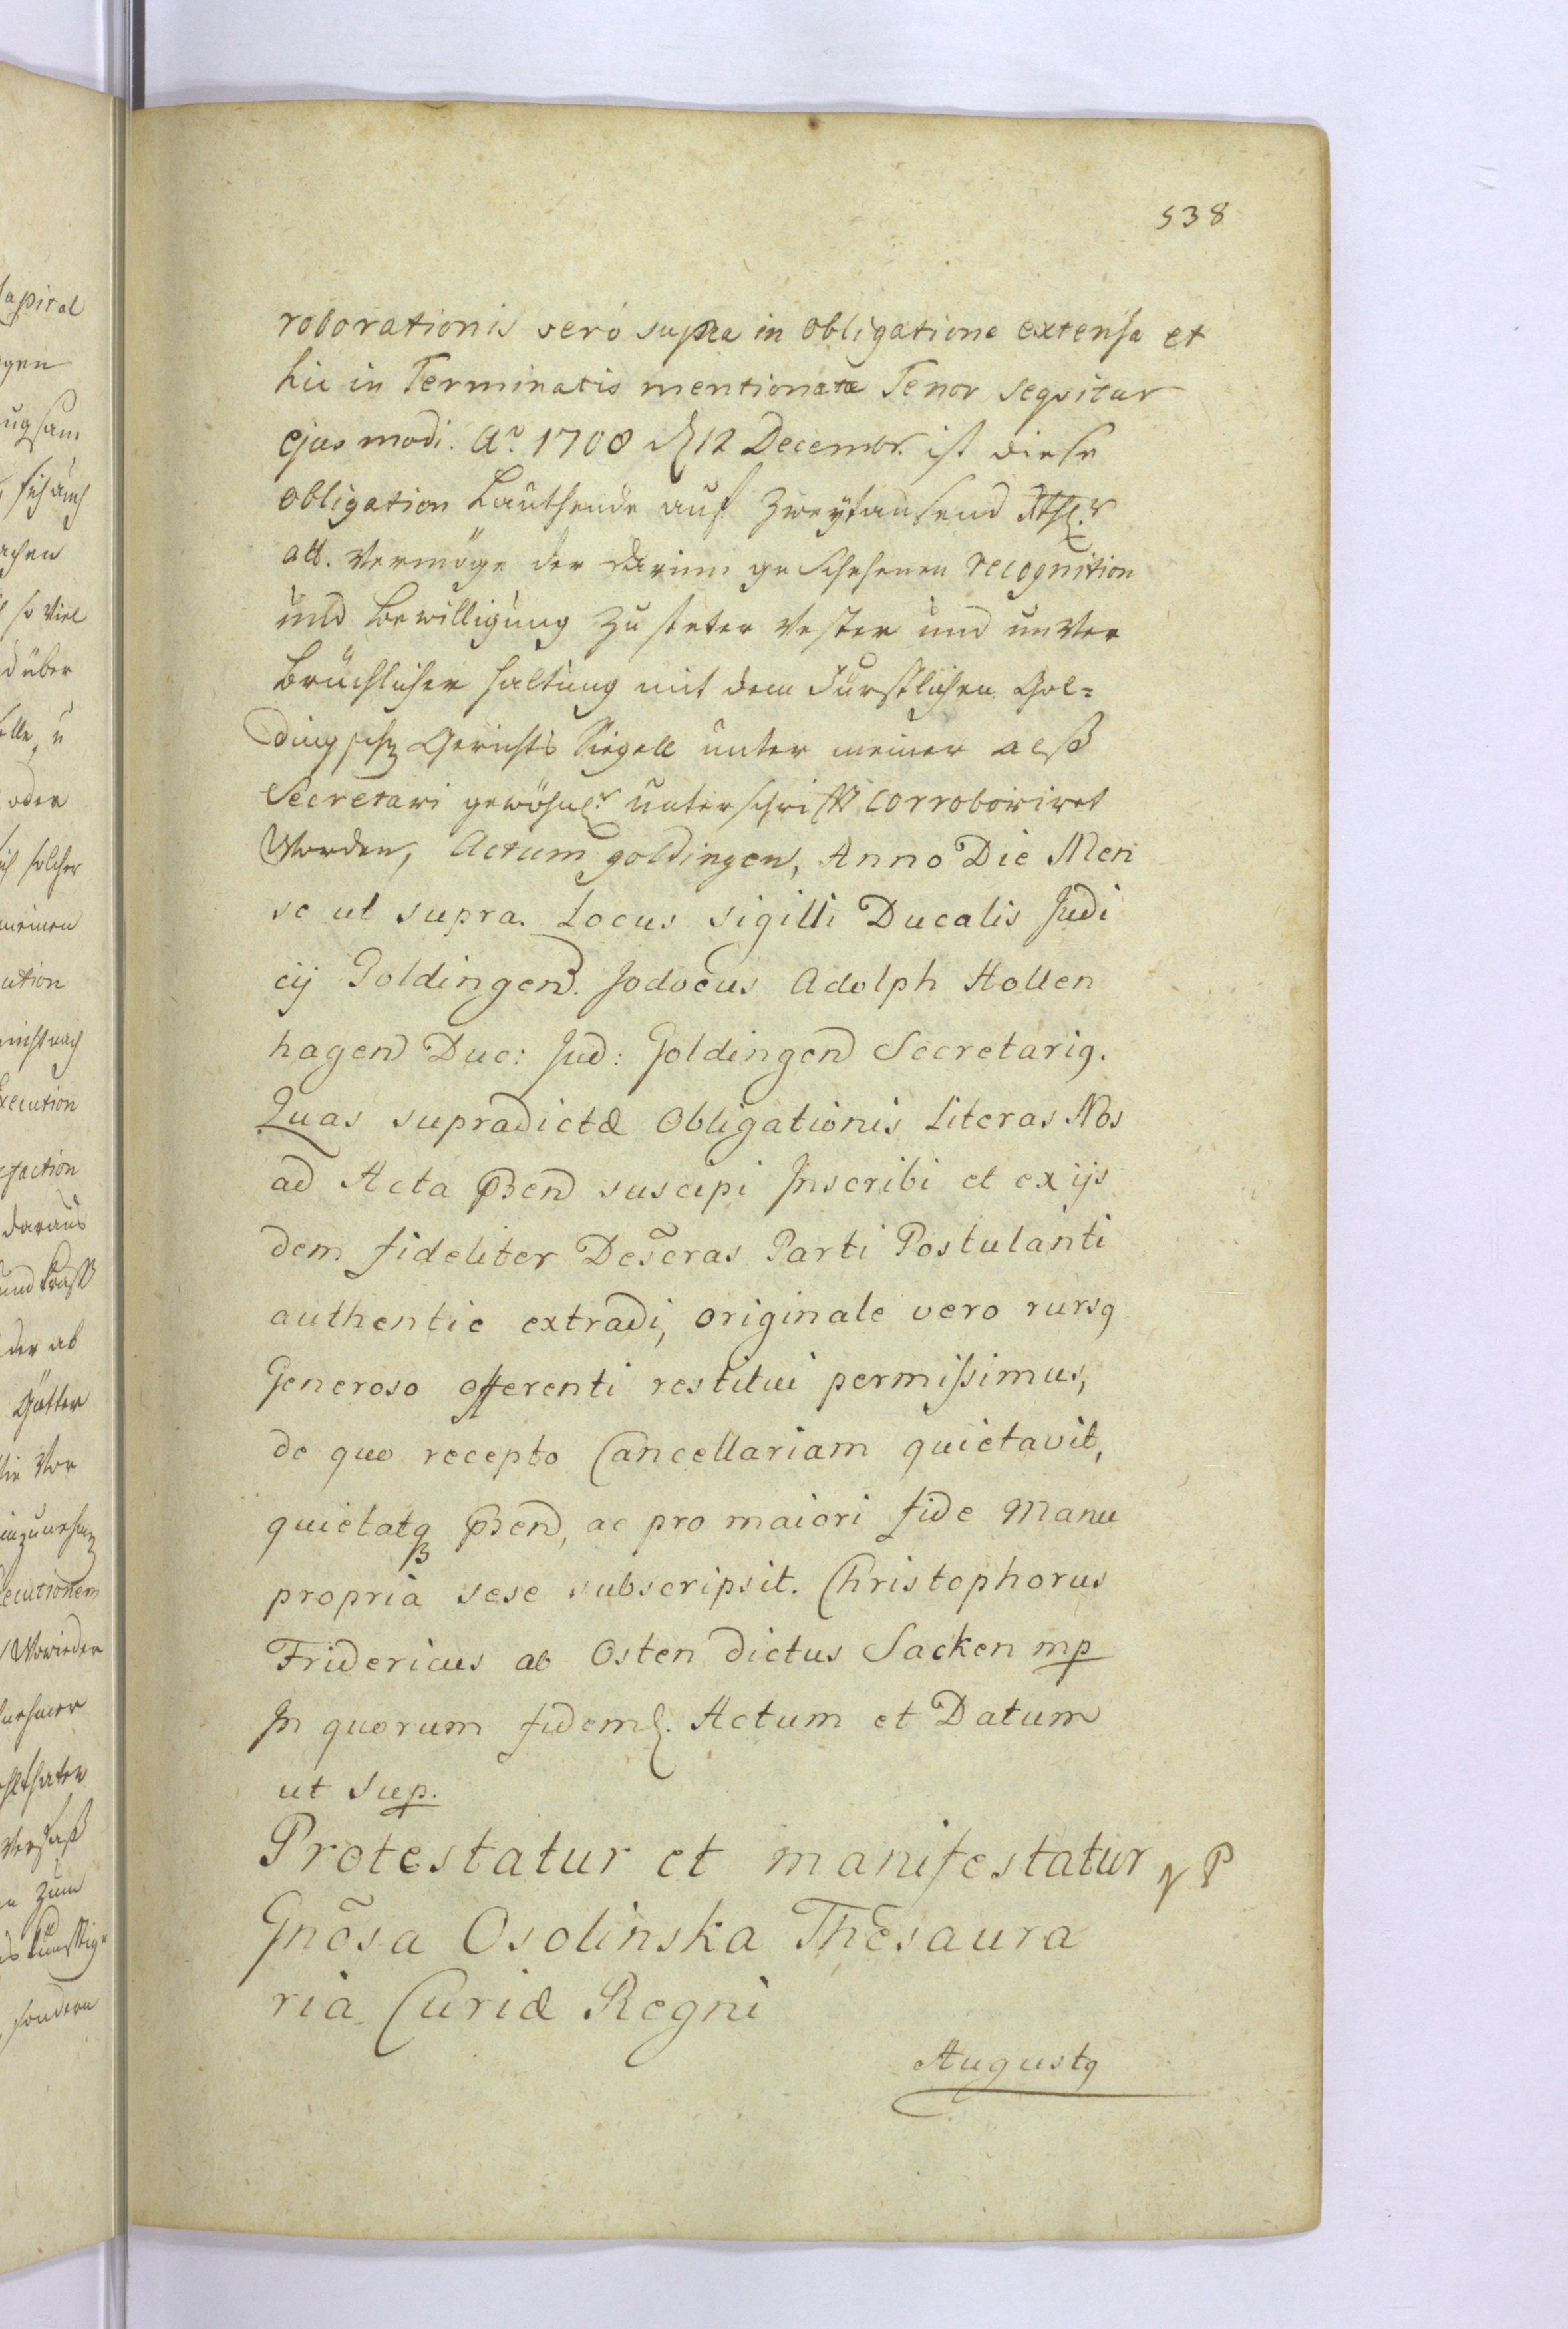 538
roborationis verò supra in obligatione extensa et
hic in Terminatis mentionatæ Tenor seqvitur
ejusmodi. Aō 1708 d 12 Decembr. ist diese
obligation Lauthende auf Zweytausend Rthlr
alb. Vermöge der darinn geschehenen recognition
und bewilligung zu steter vester und unver
brüchlicher haltung mit dem Fürstlichen Gol=
dingschen Gerichts Siegell unter meiner alß
Secretari gewöhnlr unterschrifft corroboriret
Worden, Actum goldingen, Anno Die Men
se ut supra. Locus sigilli Ducalis Judi
cij Goldingen. Jodocus Adolph Hollen
hagen Duc: Jud: Goldingen Secretarig.
Quas supradictæ Obligationis Literas Nos
ad Acta pñ suscipi Inscribi et ex ijs
dem fideliter Descras Parti Postulanti
authentic extradi, originale vero rursq
Generoso offerenti restitui permissimus,
de quo recepto Cancellariam quietavit,
quietatq pñ, ac pro maiori fide Manu
propria sese subscripsit. Christophorus
Fridericus ab Osten dictus Sacken mp
In quorum fidem. Actum et Datum
ut sup.
Protestatur et manifestatur
Gnōsa Osolinska Thesaura
ria Curiæ Regni
Augustq
apital
gen
ugsam
sich auch
achen
so viel
d über
elle, u
oder
ich solcher
meinen
ution
nicht nach
Execution
faction
daraus
und Krafft
der ab
Gütter
die Vor
einzunehmen
ecutionem
Worinden
nehmer
sondern